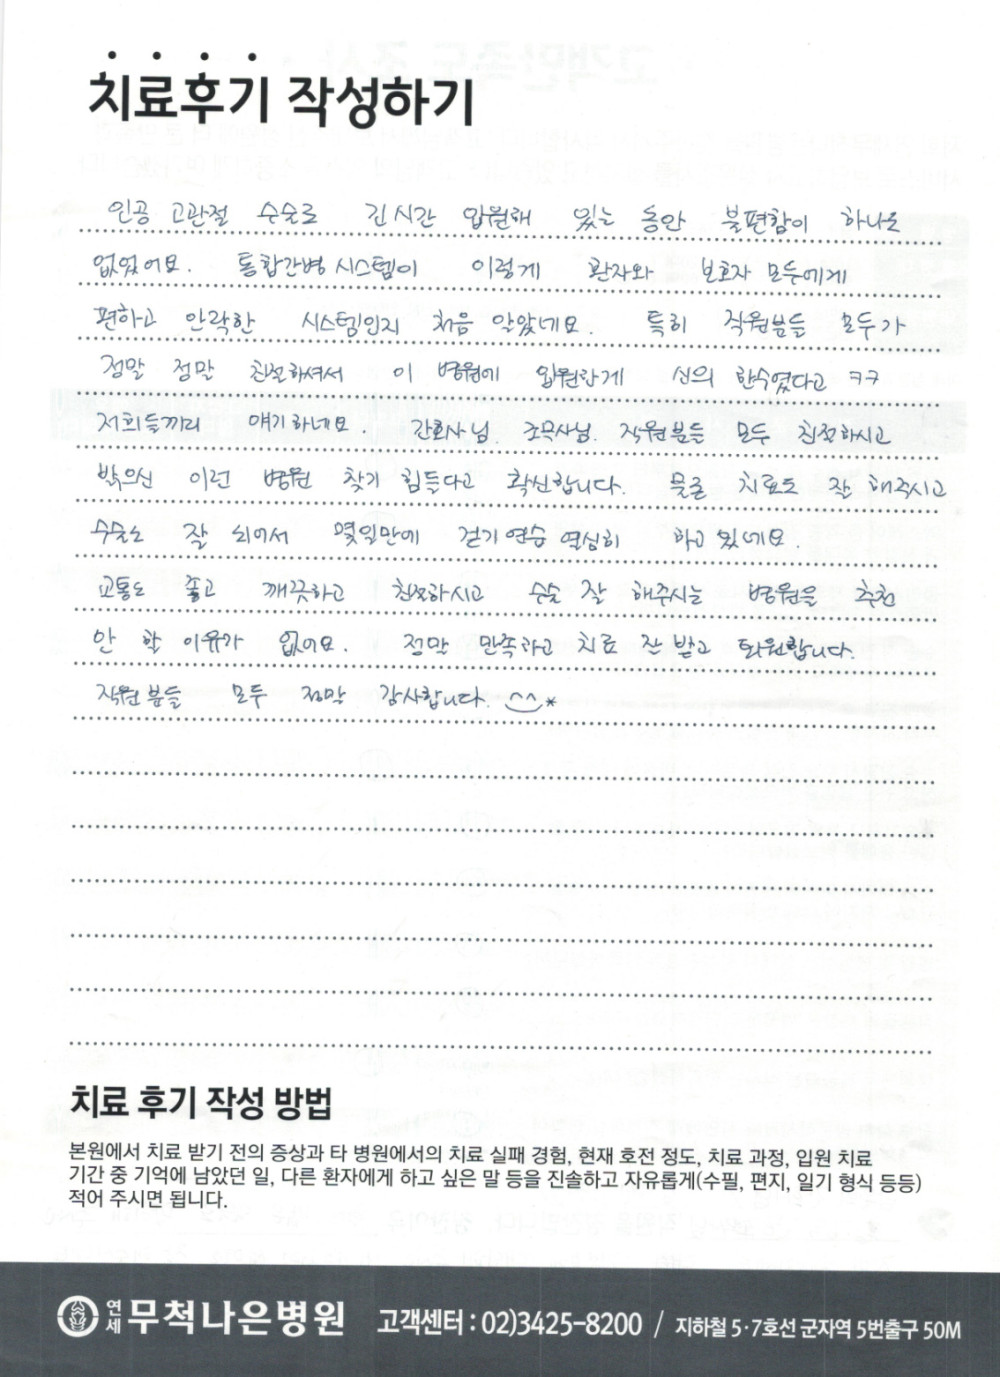 치료후기 작성하기
인공 고관절 수술로 긴 시간 입원해 있는 동안 불편함이 하나도
없었어요. 통합간병 시스템이 이렇게 환자와 보호자 모두에게
편하고 안락한 시스템인지 처음 알았네요. 특히 직원분들 모두가
정말 정말 친절하셔서 이 병원에 입원한게 신의 한수였다고 ㅋㅋ
저희들끼리 얘기하네요 간호사님. 조무사님. 직원분들 모두 친절하시고
밝으신 이런 병원 찾기 힘들다고 확신합니다. 물론 치료도 잘 해주시고
수술도 잘 되어서 몇일만에 걷기 연습 열심히 하고 있네요.
교통도 좋고 깨끗하고 친절하시고 수술 잘 해주시는 병원을 추천
안 할 이유가 없어요. 정말 만족하고 치료 잘 받고 퇴원합니다.
직원분들 모두 정말 감사합니다. ^^*
치료 후기 작성 방법
본원에서 치료 받기 전의 증상과 타 병원에서의 치료 실패 경험, 현재 호전 정도, 치료 과정, 입원 치료
기간 중 기억에 남았던 일, 다른 환자에게 하고 싶은 말 등을 진솔하고 자유롭게(수필, 편지, 일기 형식 등등)
적어 주시면 됩니다.
연세 무척나은병원 고객센터 : 02)3425-8200 / 지하철 5·7호선 군자역 5번출구 50M